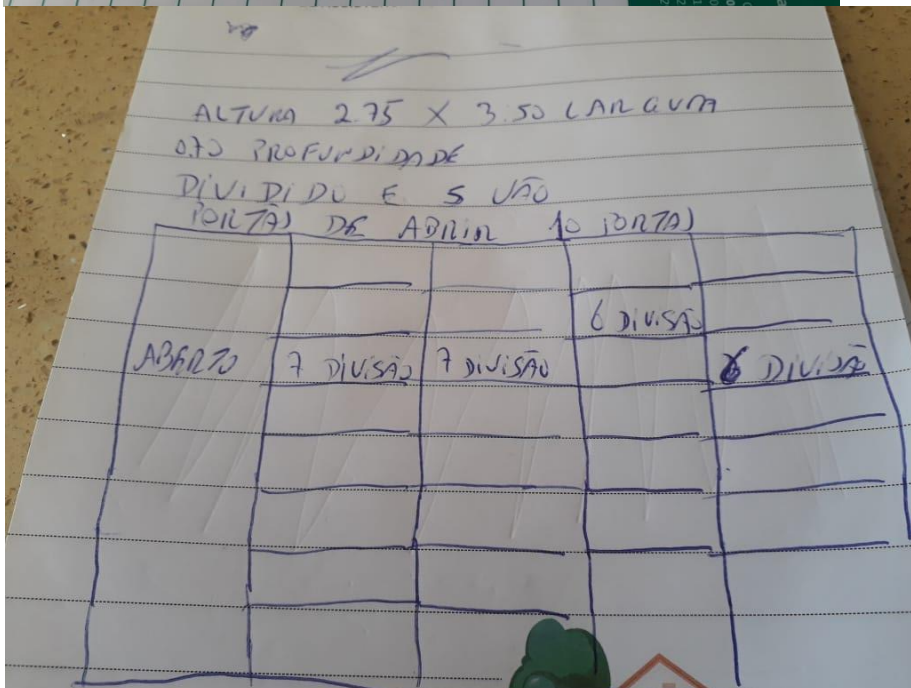 ALTURA 2.75 X 3.50 LARGURA
0.70 PROFUNDIDADE
DIVIDIDO E 5 VÃO
PORTAS DE ABRIR 10 PORTAS
6 DIVISÃO
ABERTO 7 DIVISÃO 7 DIVISÃO 6 DIVISÃO